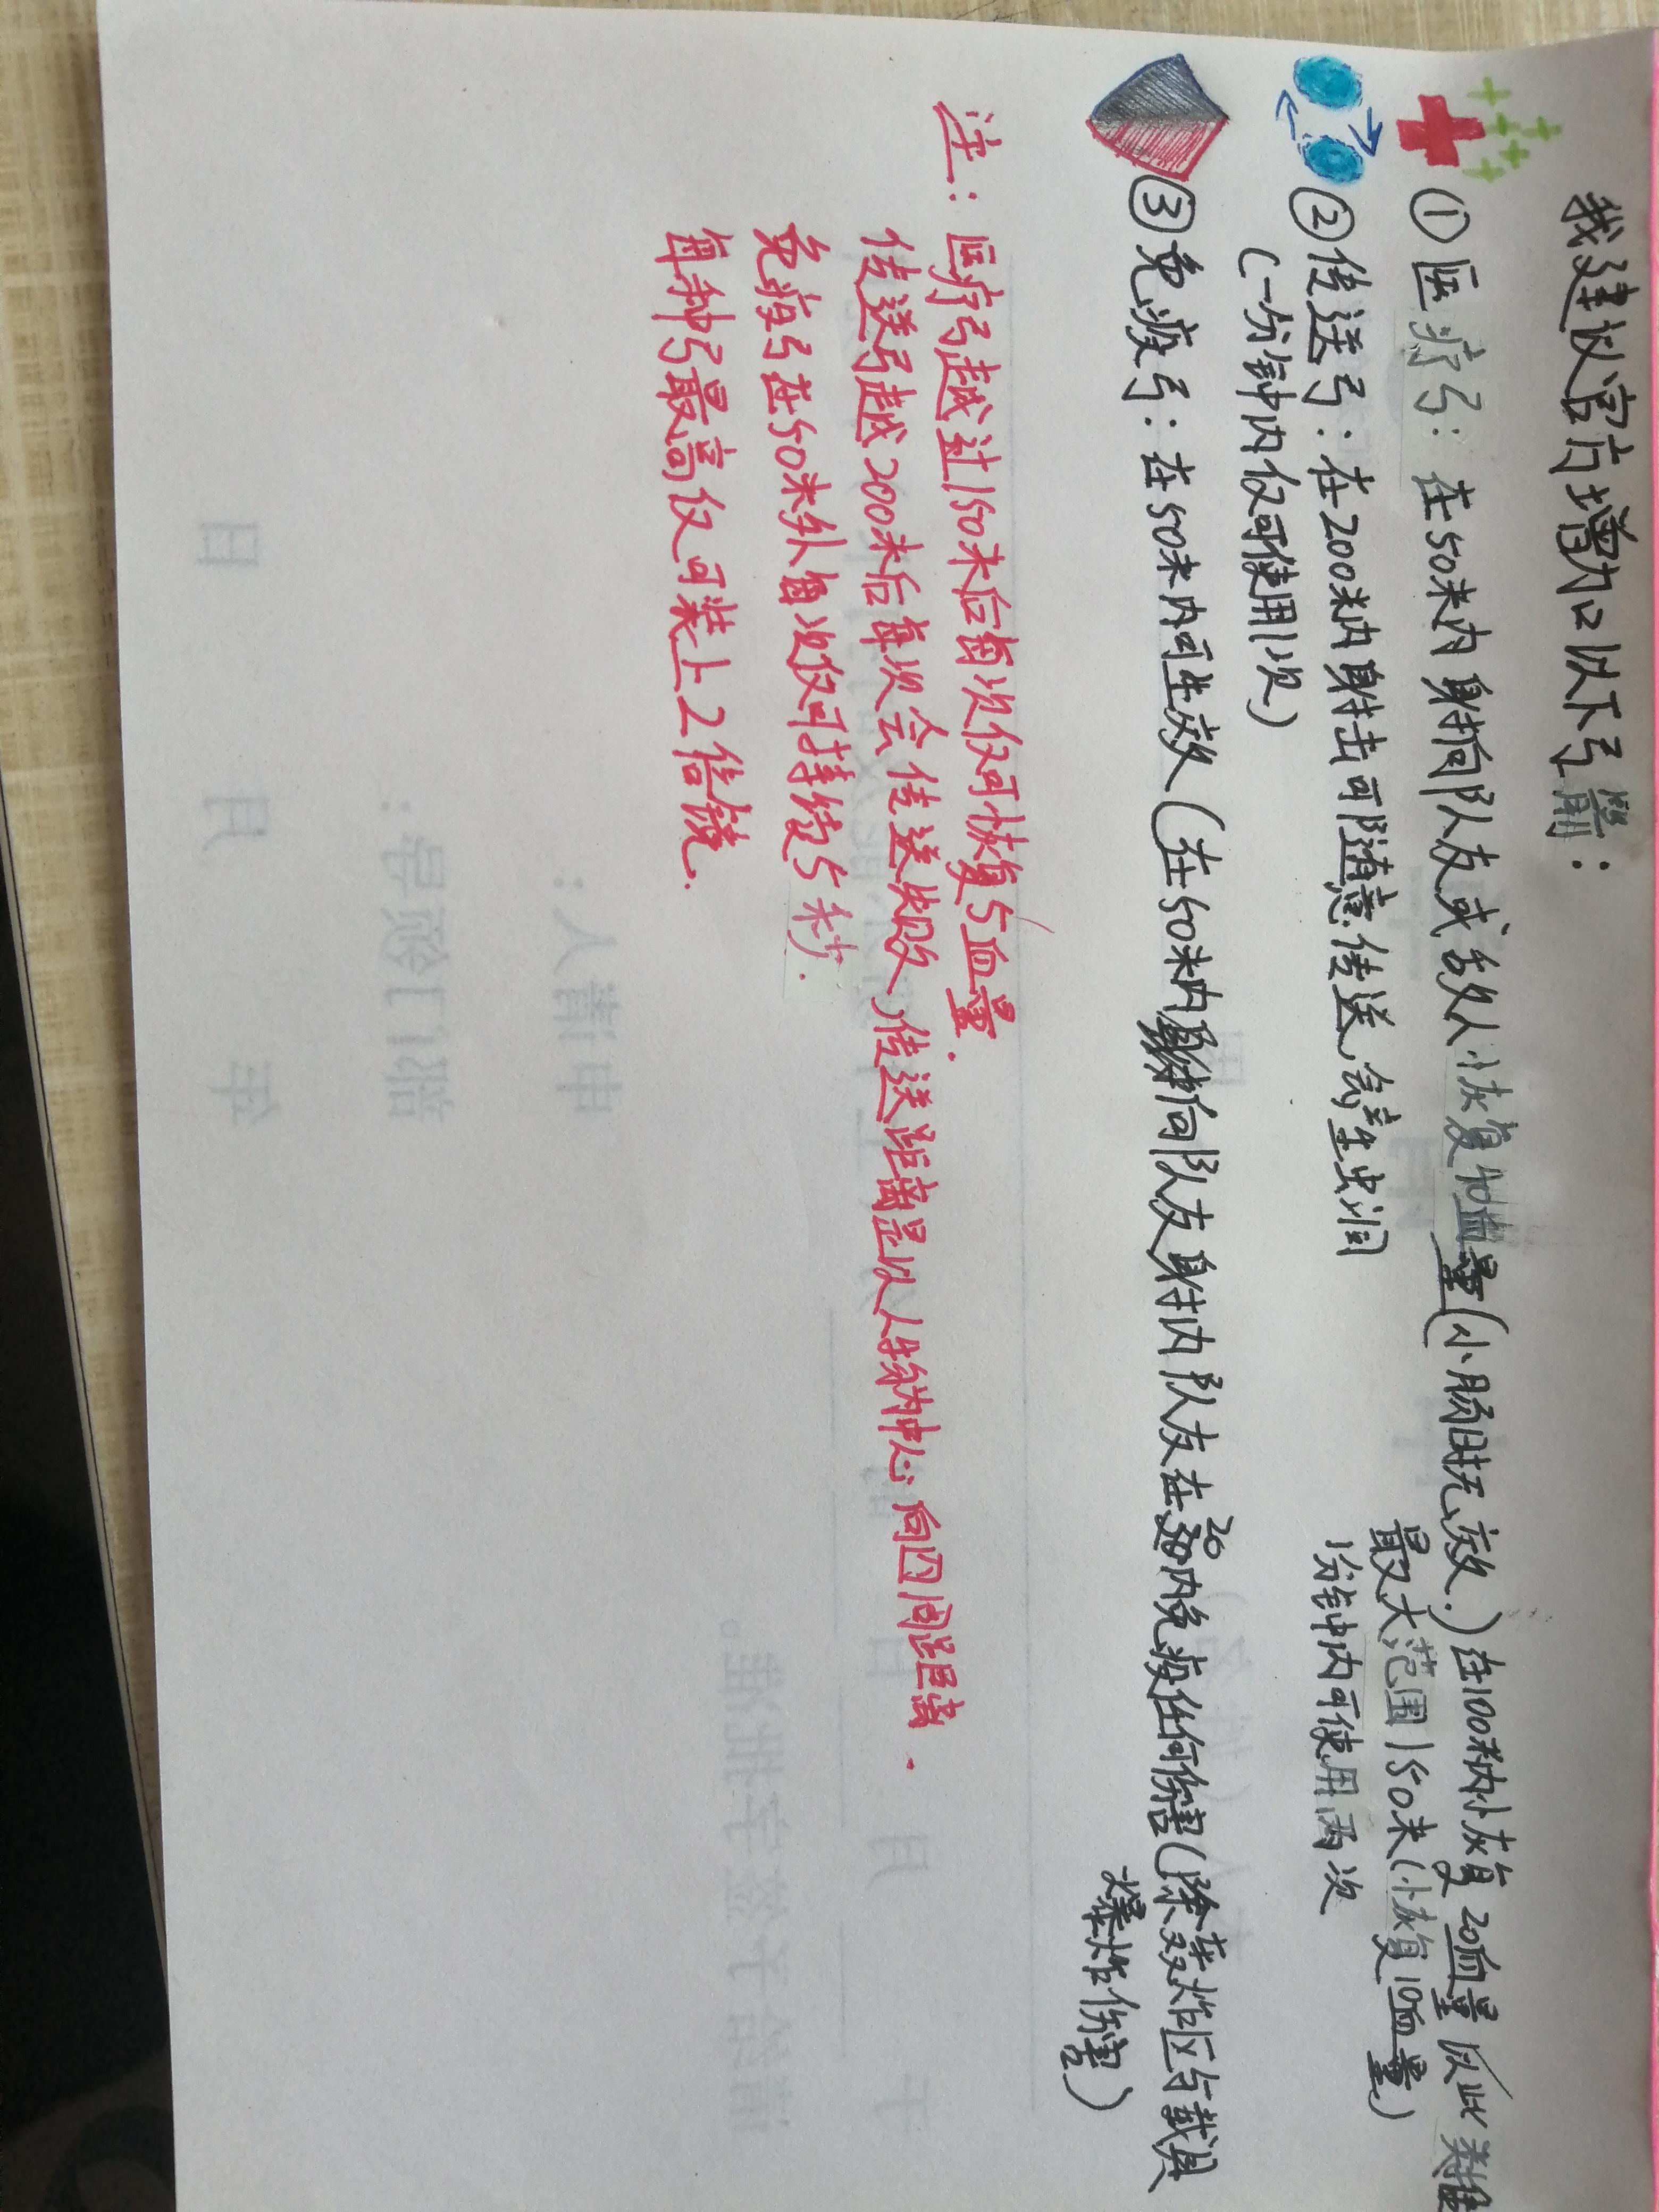 我建议官方增加以下弓箭：
①医疗弓：在50米内射向队友或敌人恢复40血量(小肠时无效.)在100米内恢复20血量 以此类推
最大范围150米(恢复10血量)
1分钟内可使用两次
②传送弓：在200米内射击可随意传送,会产生虫洞
(一分钟内仅可使用1次)
③免疫弓：在50米内可生效(在50米内射向队友射中队友在20秒内免疫任何伤害(除轰炸区与载具
爆炸伤害)
注：医疗弓越过150米后每次仅可恢复5血量.
传送弓越200米后每次会传送失败,传送距离是以人物为中心向四周距离.
免疫弓在50米外每次仅可持续5秒.
每种弓最高仅可装上2倍镜.
申请人：
部门领导：
年 月 日